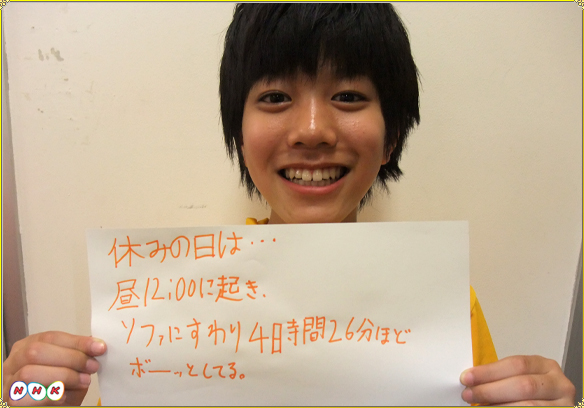 休みの日は…
昼12:00に起き、
ソファにすわり4日時間26分ほど
ボーッとしてる。
NHK